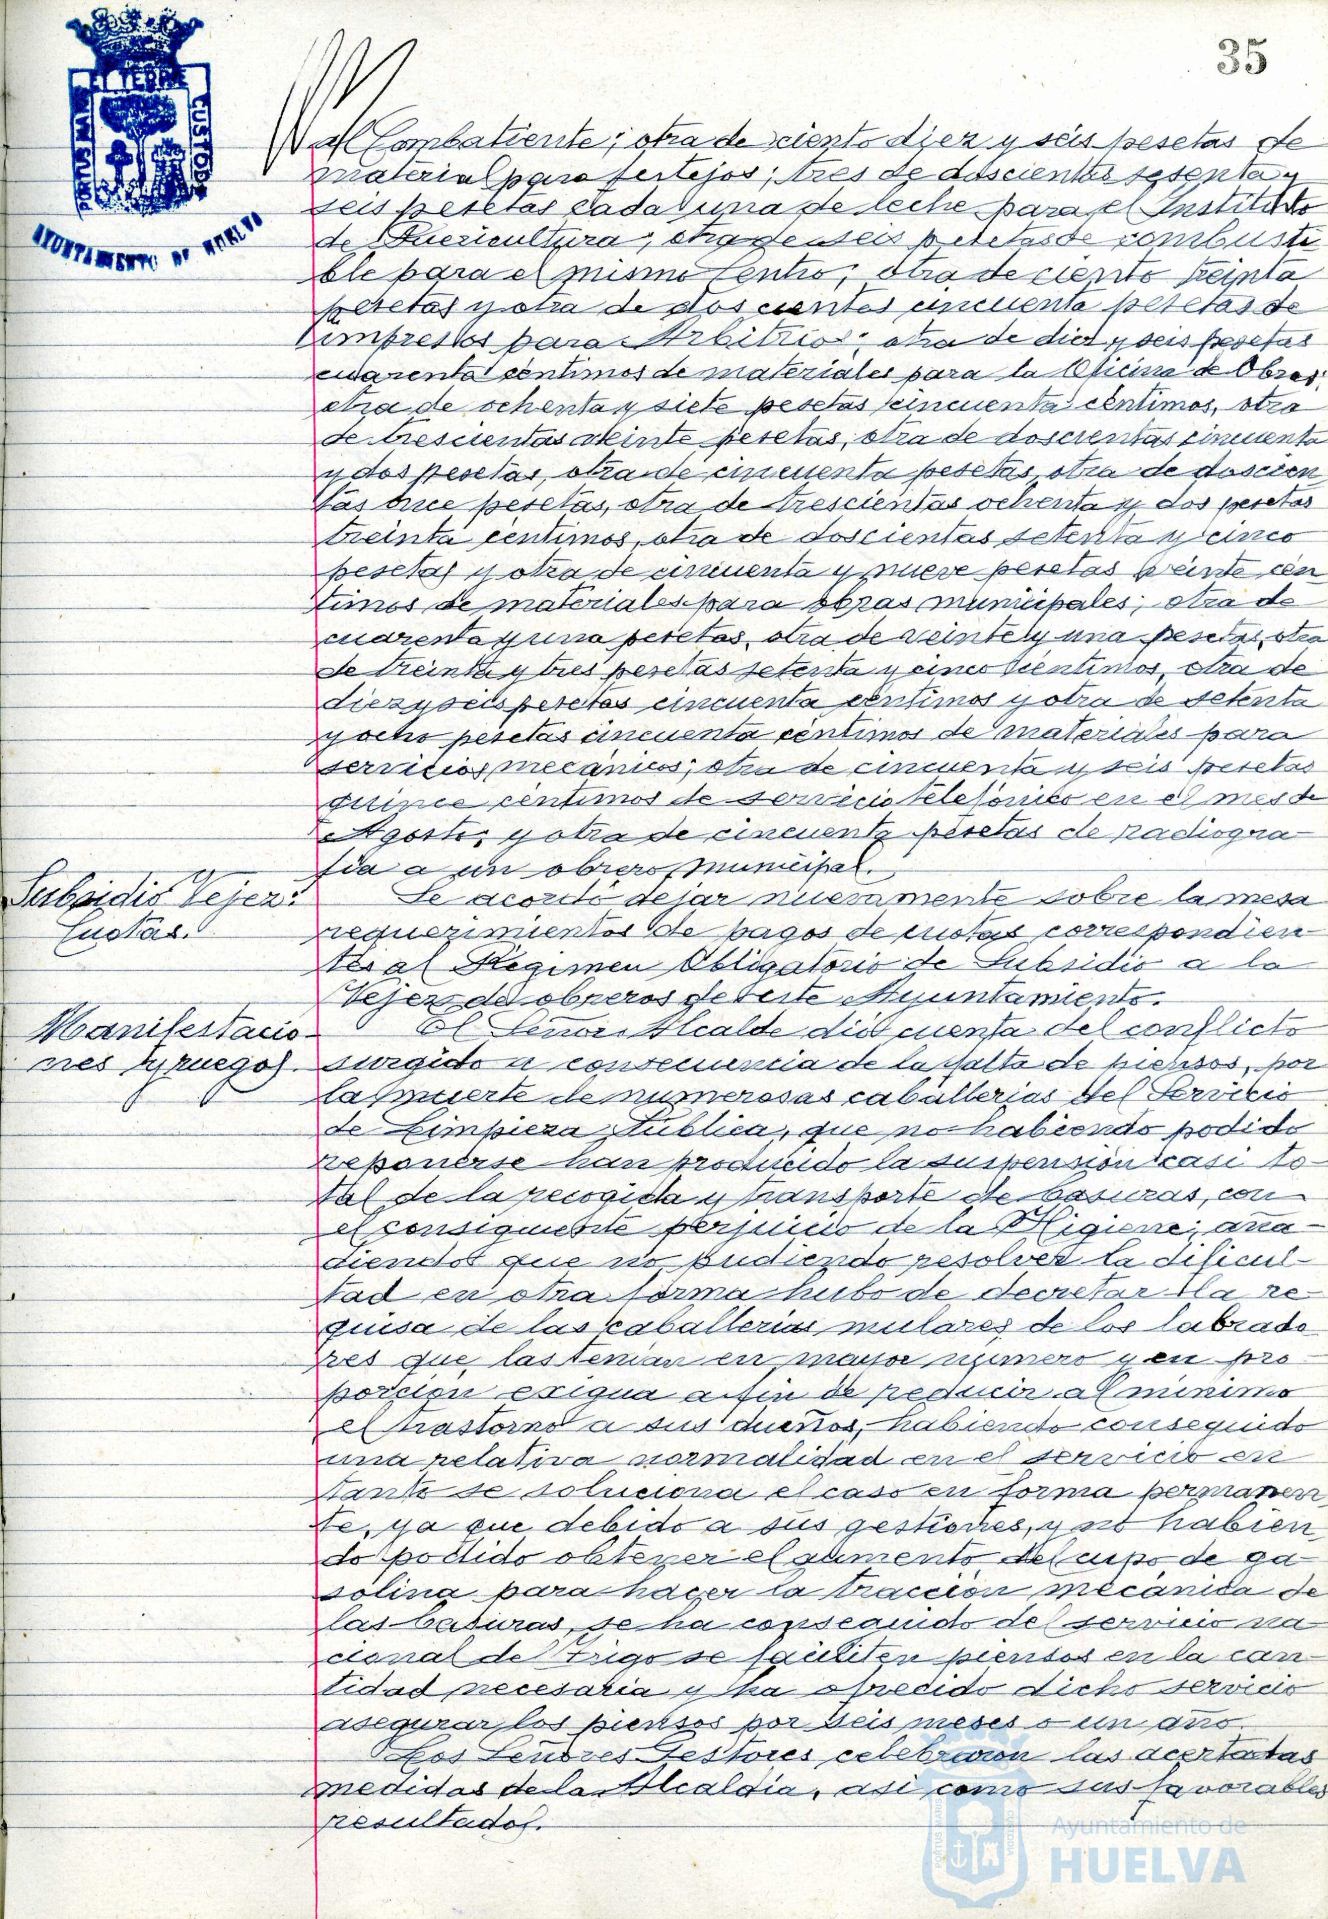 35
PORTUS MARIS ET TERRE CUSTODIA
AYUNTAMIENTO DE HUELVA
al Combatiente; otra de ciento diez y seis pesetas de
material para festejos; tres de doscientas sesenta y
seis pesetas cada una de leche para el Instituto
de Puericultura; otra de seis pesetas de combusti
ble para el mismo Centro; otra de ciento treinta
pesetas y otra de doscientas cincuenta pesetas de
impresos para Arbitrios; otra de diez y seis pesetas
cuarenta céntimos de materiales para la Oficina de Obras;
otra de ochenta y siete pesetas cincuenta céntimos, otra
de trescientas veinte pesetas, otra de doscientas cincuenta
y dos pesetas, otra de cincuenta pesetas, otra de doscien
tas once pesetas, otra de trescientas ochenta y dos pesetas
treinta céntimos, otra de doscientas setenta y cinco
pesetas y otra de cincuenta y nueve pesetas veinte cén
timos de materiales para obras municipales; otra de
cuarenta y una pesetas, otra de veinte y una pesetas, otra
de treinta y tres pesetas setenta y cinco céntimos, otra de
diez y seis pesetas cincuenta céntimos y otra de setenta
y ocho pesetas cincuenta céntimos de materiales para
servicios mecánicos; otra de cincuenta y seis pesetas
quince céntimos de servicio telefónico en el mes de
Agosto; y otra de cincuenta pesetas de radiogra-
fía a un obrero municipal.
Subsidio Vejez:
Cuotas.
Se acordó dejar nuevamente sobre la mesa
requerimientos de pagos de cuotas correspondien-
tes al Régimen Obligatorio de Subsidio a la
Vejez de obreros de este Ayuntamiento.
Manifestacio-
nes y ruegos.
El Señor Alcalde dió cuenta del conflicto
surgido a consecuencia de la falta de piensos, por
la muerte de numerosas caballerías del Servicio
de Limpieza Pública, que no habiendo podido
reponerse han producido la suspensión casi to-
tal de la recogida y transporte de basuras, con
el consiguiente perjuicio de la Higiene; aña-
diendo que no pudiendo resolver la dificul-
tad en otra forma hubo de decretar la re-
quisa de las caballerías mulares de los labrado
res que las tenían en mayor número y en pro-
porción exigua a fin de reducir al mínimo
el trastorno a sus dueños, habiendo conseguido
una relativa normalidad en el servicio en
tanto se soluciona el caso en forma permanen
te, ya que debido a sus gestiones, y no habien
do podido obtener el aumento del cupo de ga
solina para hacer la tracción mecánica de
las basuras, se ha conseguido del servicio na
cional del Trigo se faciliten piensos en la can-
tidad necesaria y ha ofrecido dicho servicio
asegurar los piensos por seis meses o un año.
Los Señores Gestores celebraron las acertadas
medidas de la Alcaldía, así como sus favorables
resultados.
Ayuntamiento de
HUELVA